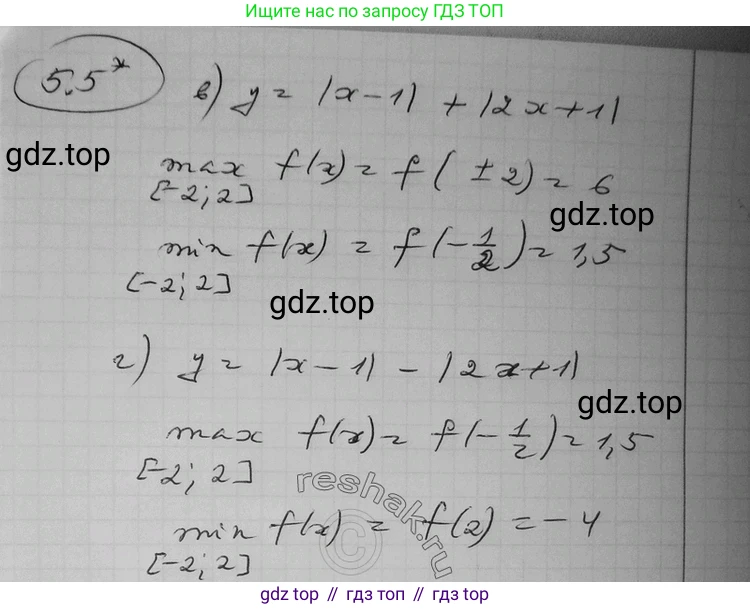 Ищите нас по запросу ГДЗ ТОП
5.5*
в) y = |x-1| + |2x+1|
gdz.top
max f(x) = f(±2) = 6
[-2; 2]
gdz.top
min f(x) = f(-1/2) = 1,5
[-2; 2]
gdz.top
г) y = |x-1| - |2x+1|
gdz.top
max f(x) = f(-1/2) = 1,5
[-2; 2]
reshak.ru
©
min f(x) = f(2) = -4
[-2; 2]
gdz.top // гдз топ // гдз.top